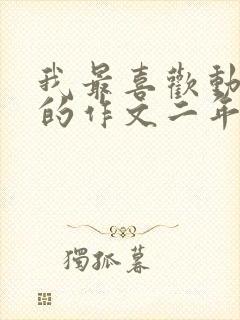 我最喜歡動
的作文二年
獨孤暮